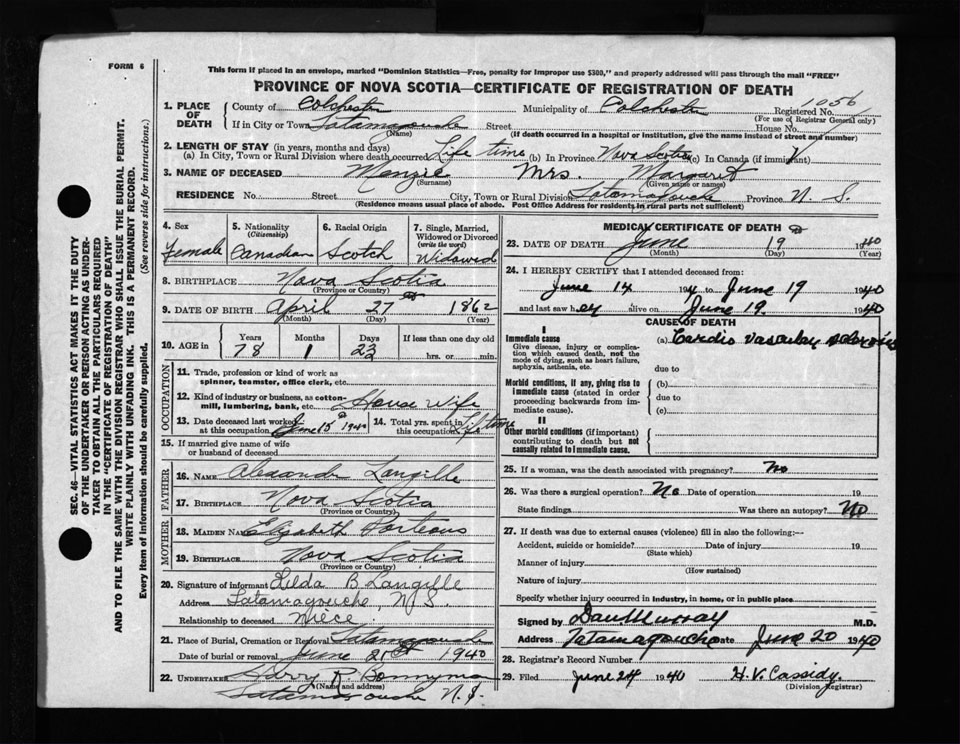 FORM 6
This form if placed in an envelope, marked "Dominion Statistics—Free, penalty for improper use $300," and properly addressed will pass through the mail "FREE"
PROVINCE OF NOVA SCOTIA—CERTIFICATE OF REGISTRATION OF DEATH
1. PLACE OF DEATH
County of Colchester Municipality of Colchester Registered No. 1056
(For use of Registrar General only)
If in City or Town Tatamagouche Street House No.
(Name) (If death occurred in a hospital or institution, give the name instead of street and number)
2. LENGTH OF STAY (in years, months and days)
(a) In City, Town or Rural Division where death occurred Life time (b) In Province Nova Scotia (c) In Canada (if immigrant)
3. NAME OF DECEASED Menzie Mrs. Margaret
(Surname) (Given name or names)
RESIDENCE No. Street City, Town or Rural Division Tatamagouche Province N. S.
(Residence means usual place of abode. Post Office Address for residents in rural parts not sufficient)
4. Sex
Female
5. Nationality
(Citizenship)
Canadian
6. Racial Origin
Scotch
7. Single, Married, Widowed or Divorced
(write the word)
Widowed
8. BIRTHPLACE Nova Scotia
(Province or Country)
9. DATE OF BIRTH April 27th 1862
(Month) (Day) (Year)
10. AGE in Years Months Days If less than one day old
78 1 23 hrs. or min.
OCCUPATION
11. Trade, profession or kind of work as
spinner, teamster, office clerk, etc.
12. Kind of industry or business, as cotton-
mill, lumbering, bank, etc. House Wife
13. Date deceased last worked
at this occupation June 15th 1940
14. Total yrs. spent in
this occupation Life time
15. If married give name of wife
or husband of deceased
FATHER
16. NAME Alexander Langille
17. BIRTHPLACE Nova Scotia
(Province or Country)
MOTHER
18. MAIDEN NAME Elizabeth Porteous
19. BIRTHPLACE Nova Scotia
(Province or Country)
20. Signature of informant B Langille
Address Tatamagouche, N.S.
Relationship to deceased Niece
21. Place of Burial, Cremation or Removal Tatamagouche
Date of burial or removal June 21st 1940
22. UNDERTAKER Harry R. Bonnyman
(Name and address)
Tatamagouche N.S.
MEDICAL CERTIFICATE OF DEATH
23. DATE OF DEATH June 19 1940
(Month) (Day) (Year)
24. I HEREBY CERTIFY that I attended deceased from:
June 14 194 to June 19 1940
and last saw her alive on June 19 1940
CAUSE OF DEATH
I
Immediate cause
Give disease, injury or complica-
tion which caused death, not the
mode of dying, such as heart failure,
asphyxia, asthenia, etc.
(a) Cardio vascular sclerosis
due to
Morbid conditions, if any, giving rise to
immediate cause (stated in order
proceeding backwards from im-
mediate cause).
(b)
due to
(c)
II
Other morbid conditions (if important)
contributing to death but not
causally related to immediate cause.
25. If a woman, was the death associated with pregnancy? No
26. Was there a surgical operation? No Date of operation 19
State findings Was there an autopsy? No
27. If death was due to external causes (violence) fill in also the following:—
Accident, suicide or homicide? Date of injury 19
(State which)
Manner of injury
(How sustained)
Nature of injury
Specify whether injury occurred in industry, in home, or in public place
Signed by Dan Murray M.D.
Address Tatamagouche Date June 20 1940
28. Registrar's Record Number
29. Filed June 24 1940 H. V. Cassidy
(Division Registrar)
SEC. 46—VITAL STATISTICS ACT MAKES IT THE DUTY
OF THE UNDERTAKER OR PERSON ACTING AS UNDER-
TAKER TO OBTAIN ALL THE PARTICULARS REQUIRED
IN THE "CERTIFICATE OF REGISTRATION OF DEATH"
AND TO FILE THE SAME WITH THE DIVISION REGISTRAR WHO SHALL ISSUE THE BURIAL PERMIT.
WRITE PLAINLY WITH UNFADING INK. THIS IS A PERMANENT RECORD.
Every item of information should be carefully supplied. (See reverse side for instructions.)